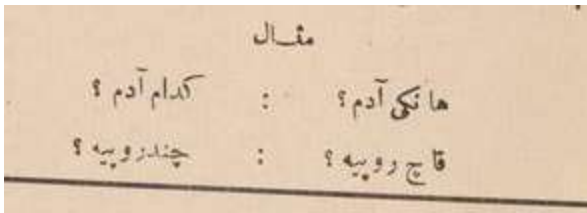 مثال
ها نکی آدم؟ : کدام آدم؟
قاچ روپیه؟ : چندروپیه؟